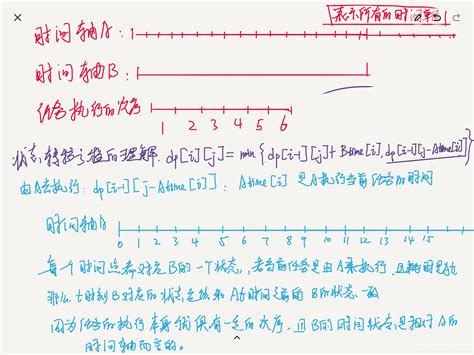 表示所有的时间单位
时间轴A:
时间轴B:
任务执行的次序
1 2 3 4 5 6
状态转移方程的理解: dp[i][j] = min{dp[i-1][j]+Btime[i], dp[i-1][j-Atime[i]]}
由A去执行: dp[i-1][j-Atime[i]]: Atime[i] 是A执行当前任务的时间
时间轴A
0 1 2 3 4 5 6 7 8 9 10 11 12 13 14 15
每一个时间点都对应B的一个状态, 若当前任务是由A来执行, 且
那么 时刻B对应的状态 和A 时间之前的B的状态一致
因为任务的执行 有一定的次序, 且B的时间状态是相对A的
时间轴而言的。